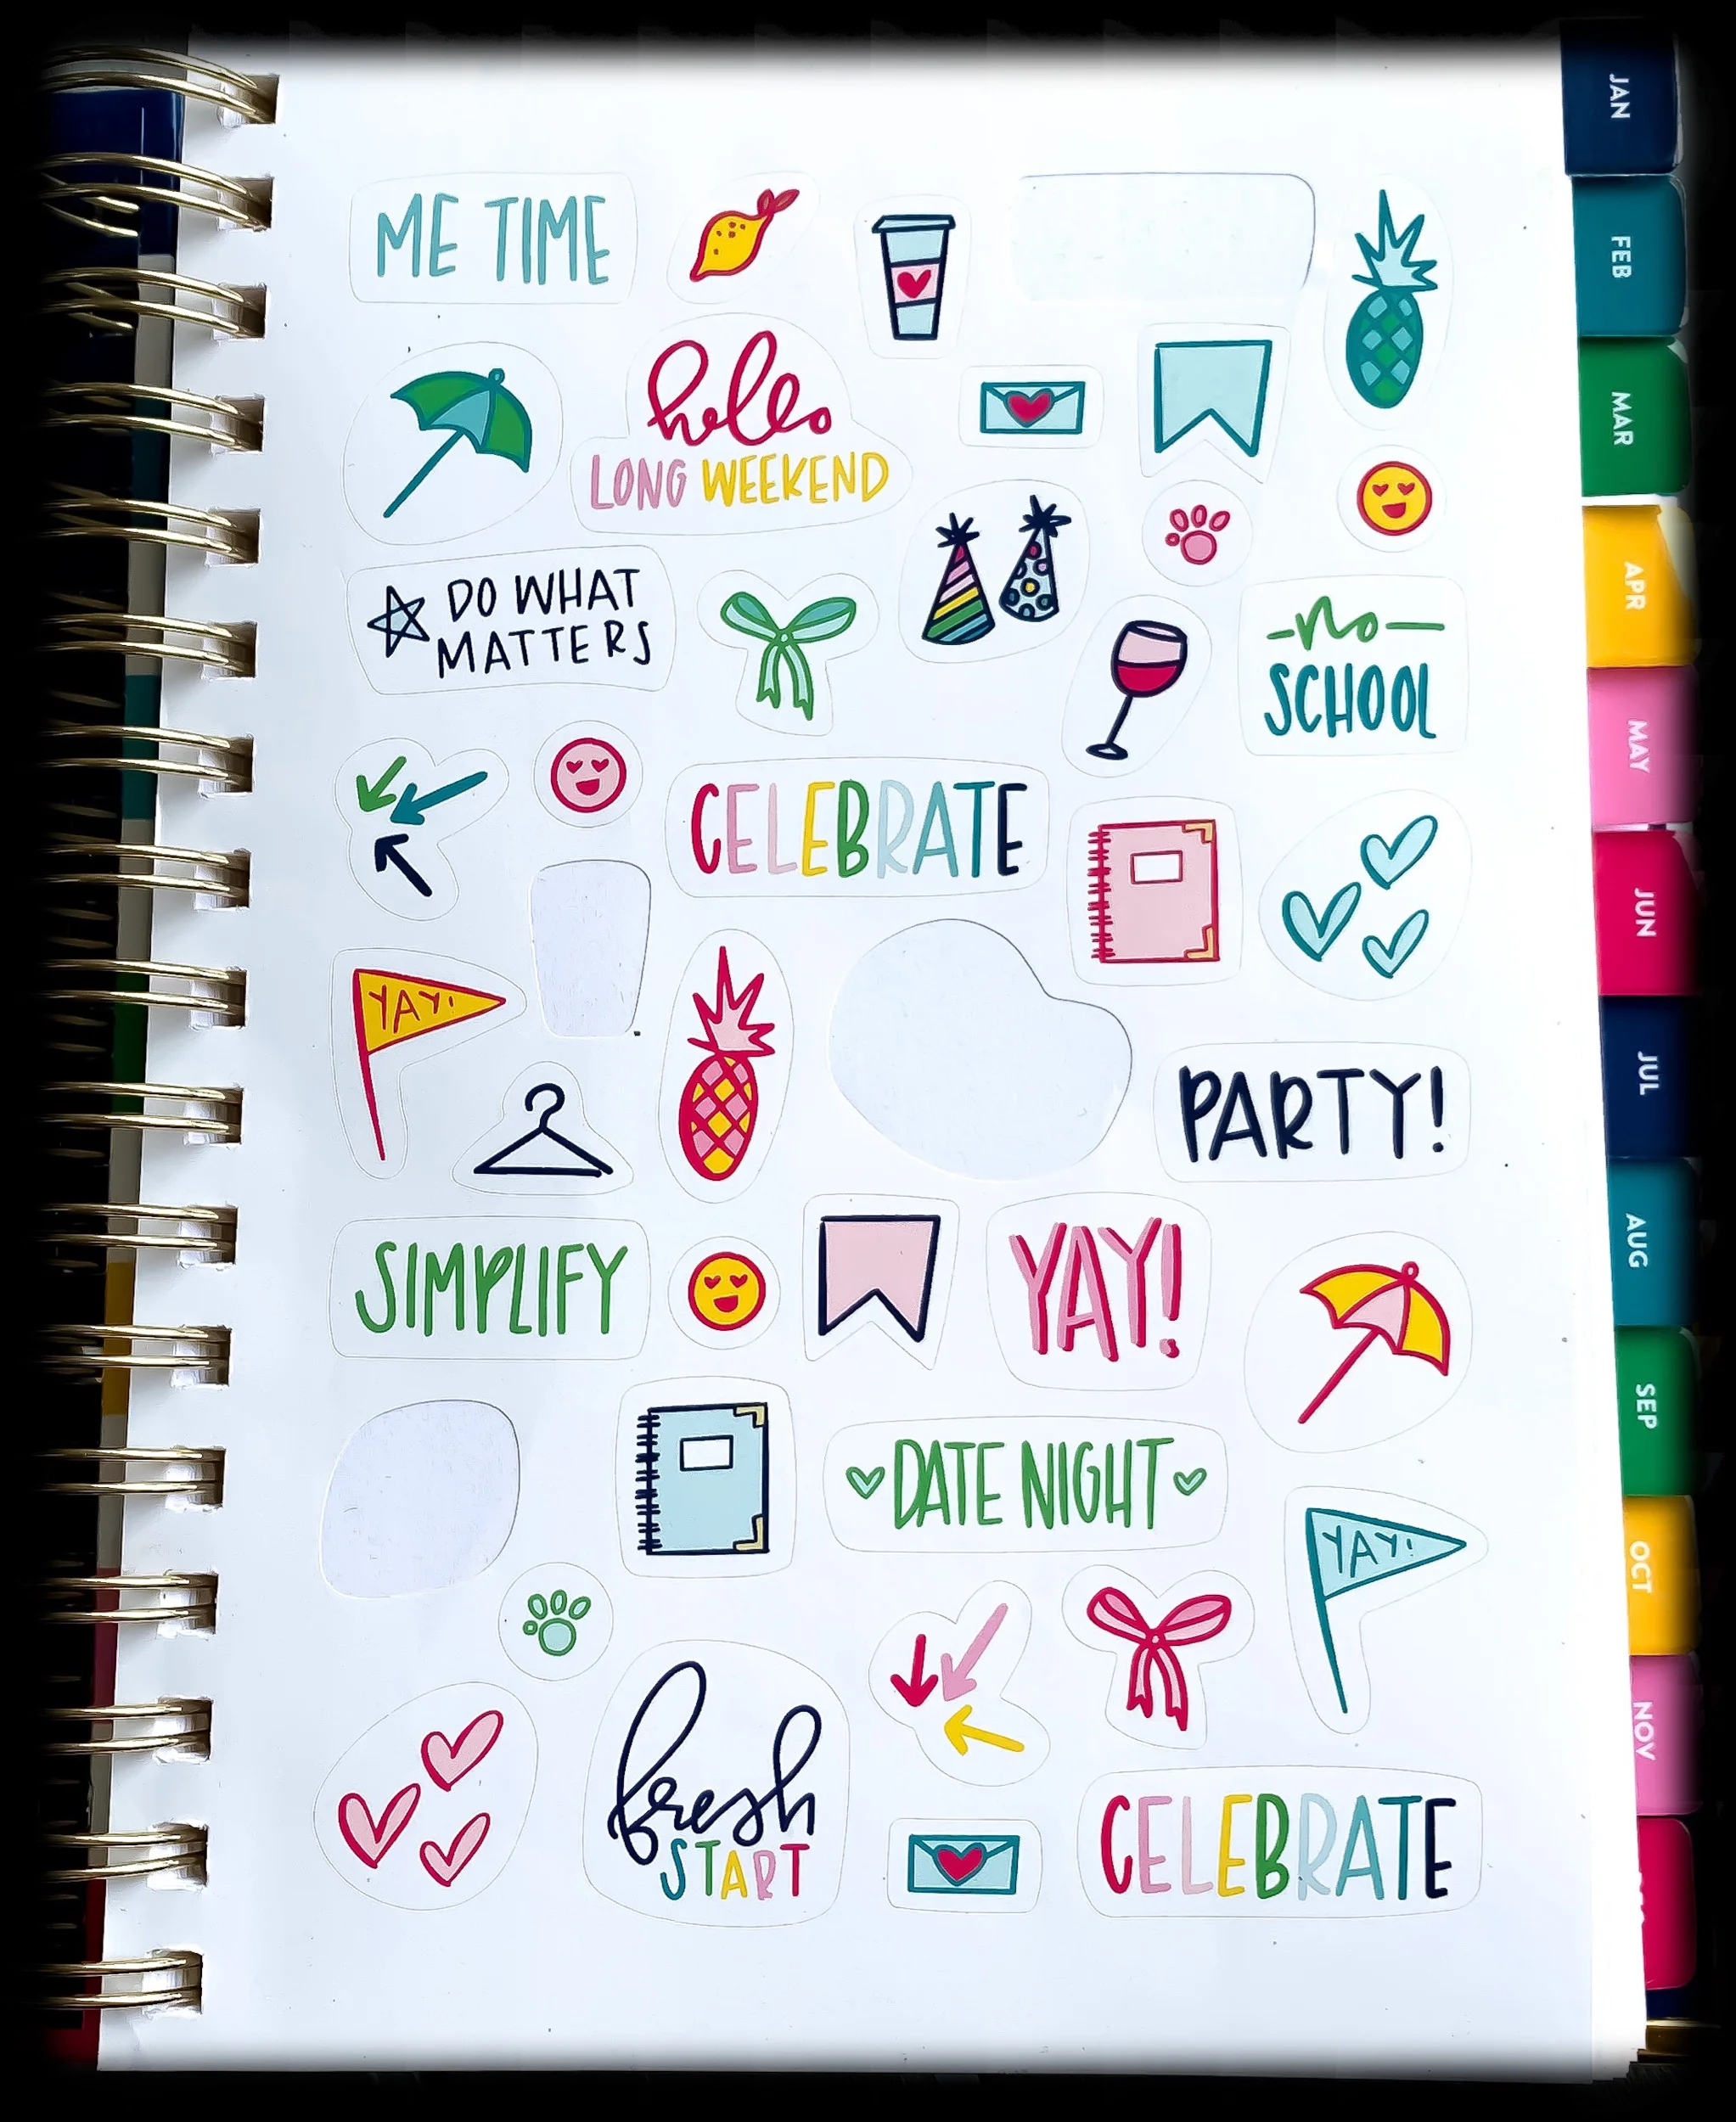 ME TIME
hello
LONG WEEKEND
DO WHAT
MATTERS
-no-
SCHOOL
CELEBRATE
YAY!
PARTY!
SIMPLIFY
YAY!
DATE NIGHT
YAY!
fresh
START
CELEBRATE
JAN
FEB
MAR
APR
MAY
JUN
JUL
AUG
SEP
OCT
NOV